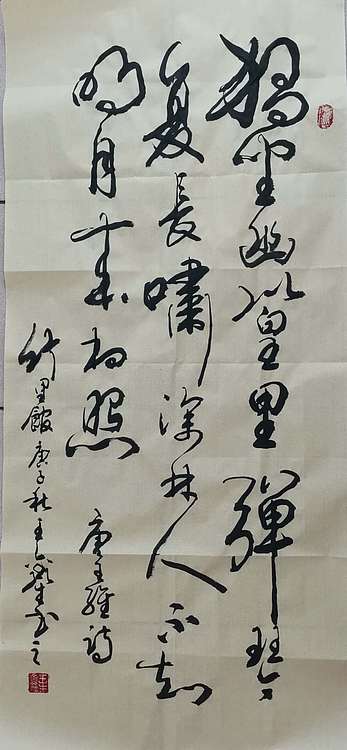 獨坐幽篁里彈琴
复長嘯深林人不知
明月来相照
唐王維詩
竹里館庚子秋王